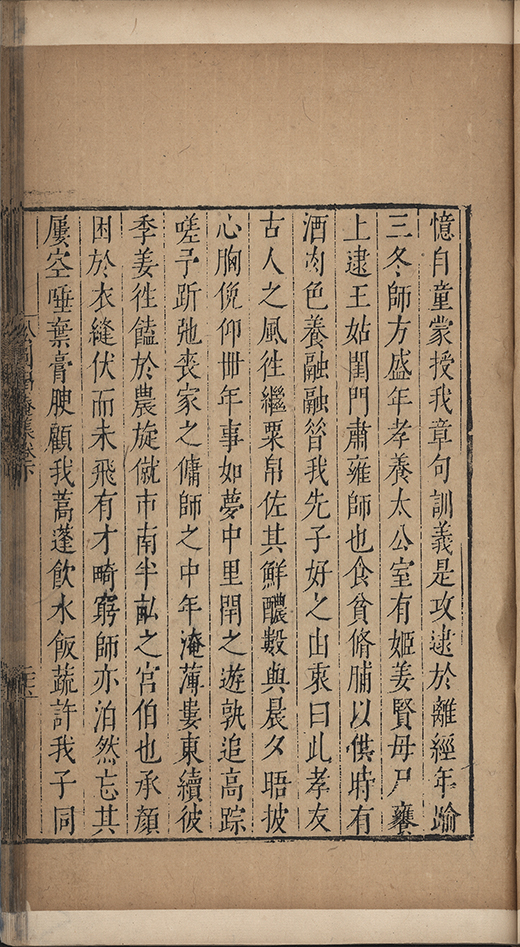 憶自童蒙授我章句訓義是攻逮於離經年踰
三冬師方盛年孝養太公室有姬姜賢毋尸饔
上逮王姑閨門肅雍師也食貧脩脯以供時有
酒肉色養融融昝我先子好之由衷曰此孝友
古人之風徃繼粟帛佐其鮮醲數與晨夕晤披
心胸俛仰卌年事如夢中里閈之遊孰追高踪
嗟予跅弛喪家之傭師之中年淹薄婁東續彼
季姜徃饁於農旋僦市南半畆之宮伯也承顔
困於衣縫伏而未飛有才畸窮師亦泊然忘其
屢空唾棄膏腴顧我蒿蓬飲水飯蔬許我子同